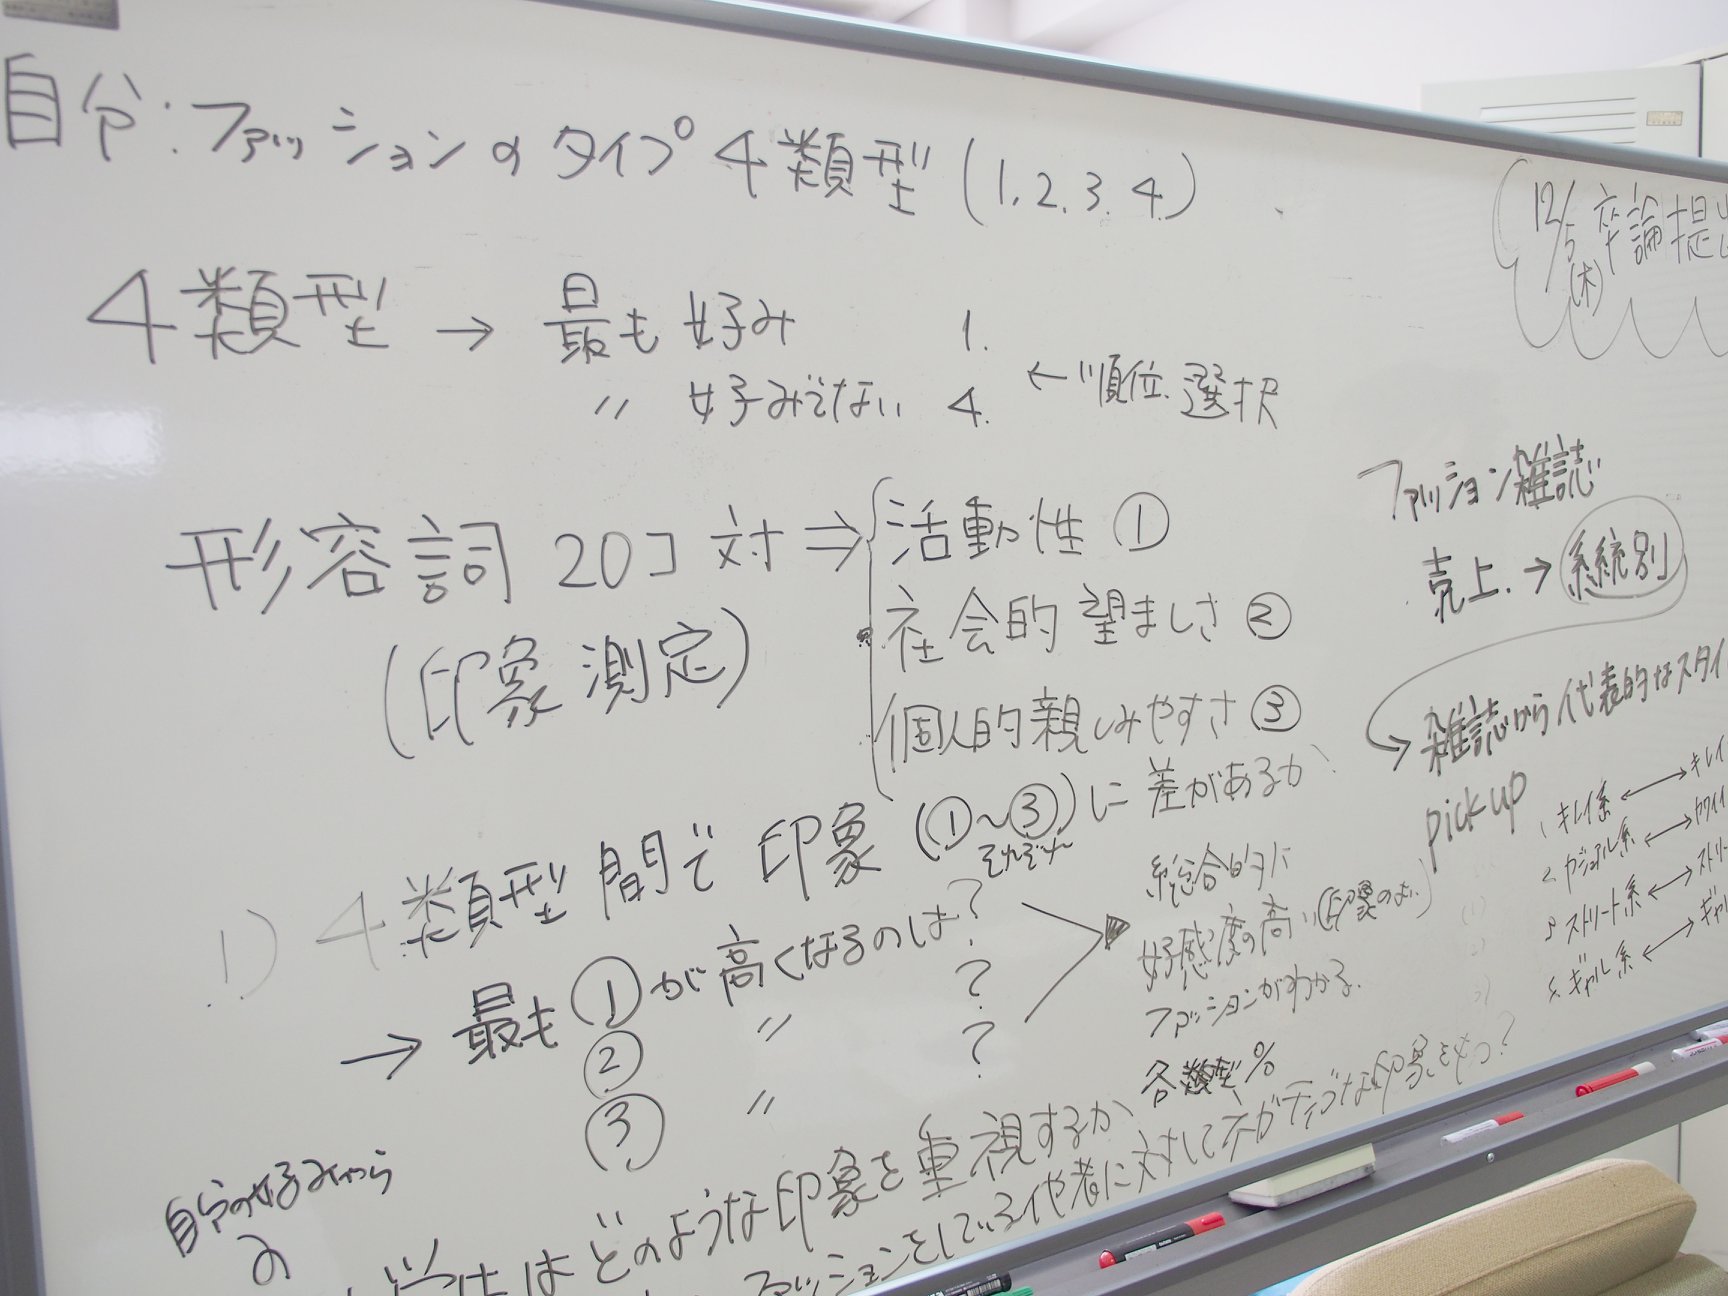 自分:ファッションのタイプ 4類型 (1.2.3.4.)
4類型 → 最も 好み 1.
〃 好みでない 4. ← 順位.選択
形容詞 20コ 対 ⇒ 活動性 ①
社会的望ましさ ②
(印象測定)
個人的親しみやすさ ③
1) 4類型間で 印象 (①〜③)に 差があるか
それぞれ
→ 最も ①が高くなるのは?
② 〃 ?
③ 〃 ?
総合的に
好感度の高い(印象のよい)
ファッションがわかる.
各類型%
自分の好みから
はどのような印象を重視するか
ファッションをしている他者に対してネガティブな印象をもつ?
12/5(木) 卒論提
ファッション雑誌
売上. → 系統別
雑誌から代表的なスタイ
pick up
1. キレイ系 ←→ キレイ
2. カジュアル系 ←→ カワイイ
3. ストリート系 ←→ ストリー
4. ギャル系 ←→ ギャル